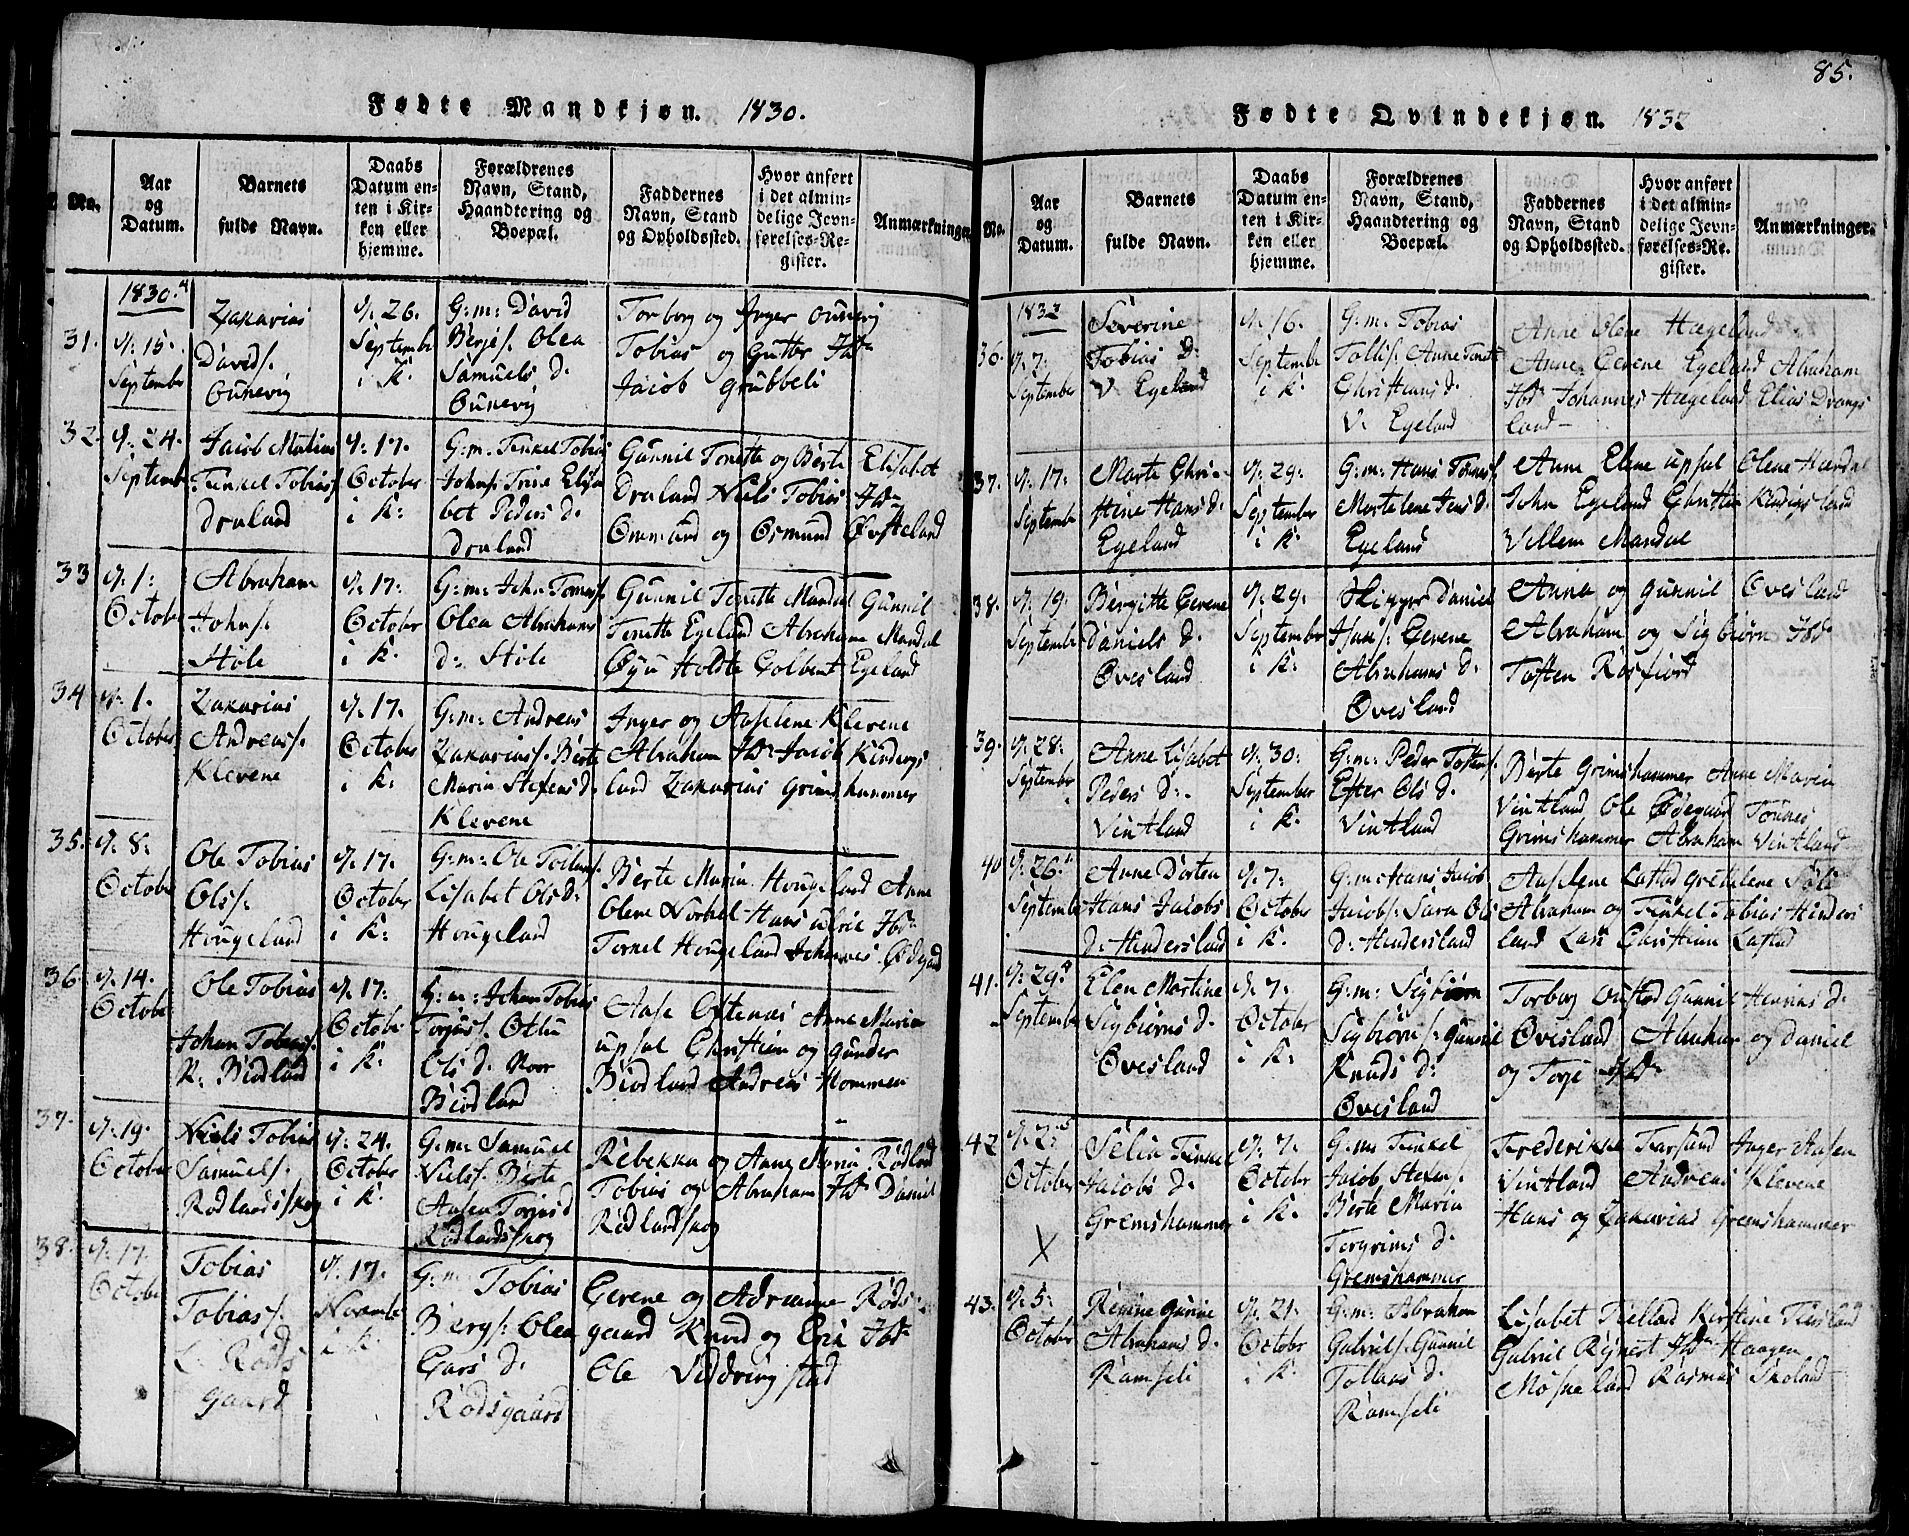 Fødte Mandkjøn. 1830.
No.
Aar
og
Datum.
Barnets
fulde Navn.
Daabs
Datum en-
ten i Kir-
ken eller
hjemme.
Forældrenes
Navn, Stand,
Haandtering og
Boepæl.
Faddernes
Navn, Stand
og Opholdssted.
Hvor anført
i det almin-
delige Jevn-
førelses-Re-
gister.
Anmærkninger.
1830.
31.
d: 15.
September
Zakarias
Davids.
Ounevig
d: 26.
Septembr
i K.
G: m: David
Berjes. Olea
Samuels d.
Ounevig
Torborg og Inger Ounevig
Tobias og Guttor Ibd
Jacob Grubbeli
32.
d: 24.
Septembr
Jacob Matias
Tenkel Tobias
Draland
d: 17.
October
i K:
G: m. Tenkel Tobias
Johns. Trine Elisa
bet Peders d.
Draland
Gunnil Tonette og Berte Elisabet
Draland Niels Tobias Ibd
Ommund og Osmund Øvsteland
33
d: 1:
October
Abraham
Johns.
Støle
d: 17:
October
i K.
G: m: John Tomes.
Olea Abrahams
d: Støle
Gunnil Tonette Mandal Gunnil
Tonette Egeland Abraham Mandal
Øyu Holdte Golbent Egeland
34
d: 1.
October
Zakarias
Andreas.
Klevene
d: 17.
October
i K:
G: m: Andreas
Zakarias. Berte
Maria Stefens d.
Klevene
Inger og Aaselene Klevene
Abraham Ibd Jacob Kindings
land Zakarias Grimshammer
35.
d: 8:
October
Ole Tobias
Ols.
Hougeland
d: 17.
October
i K:
G: m: Ole Tollags.
Lisabet Ols d.
Hougeland
Berte Maria Hougeland Anne
Olene Hans Ulric Ibd
Tornel Hougeland Johannes Ødegaard
36.
d: 14.
October
Ole Tobias
Johan Tobias.
N. Biodland
d: 17.
October
i K:
G: m: Johan Tobias
Torjus. Otlu
Ols d. Noor
Biodland
Aase Oftenæs Anne Maria
Upsal Christian og Gunder
Biodland Andreas Hommen
37.
d: 19.
October
Niels Tobias
Samuels.
Rødlandsskog
d: 24.
October
i K:
G: m: Samuel
Niels. Berte
Aasen Torjus d
Rødlandsskog
Rebekka og Anne Maria Rødland
Tobias og Abraham Ibd Daniel
Rødlandsskog
38.
d: 17.
October
Tobias
Tobias.
L. Røds
gaard
d: 17.
Novembr
i K:
G: m: Tobias
Bergs. Olea
Lars d.
Rødsgaard
Gerene og Adrianne Røds
gaard Knud og Erik Ibd
Ole Viddringstad
85.
Fødte Qvindekjøn. 1832
No.
Aar
og
Datum.
Barnets
fulde Navn.
Daabs
Datum en-
ten i Kir-
ken eller
hjemme.
Forældrenes
Navn, Stand,
Haandtering og
Boepæl.
Faddernes
Navn, Stand
og Opholdssted.
Hvor anført
i det almin-
delige Jevn-
førelses-Re-
gister.
Anmærkninger.
1832
36.
d: 7.
September
Severine
Tobias D.
V. Egeland
d: 16.
September
i K.
G: m. Tobias
Tollis. Anne Tonette
Christians d.
V. Egeland
Anne Olene Hægeland
Anne Gerene Egeland Abraham
Ibd Johannes Hægeland Elias Drangs
land
37.
d: 17.
September
Marte Chri-
stine Hans d.
Egeland
d: 29.
September
i K.
G: m: Hans Tønnes.
Martelene Jens d.
Egeland
Anne Elene Upsal Olene Hardal
John Egeland Christian Kindigsland
Villem Mandal
38.
d: 19.
September
Bergitte Gerene
Daniels d.
Øvesland
d: 29.
September
i K.
Skipper Daniel
Hans. Gerene
Abrahams d.
Øvesland
Anna og Gunnil Øvesland
Abraham og Sigbiørn Ibd
Tosten Rosfiord
39.
d: 28.
September
Anne Lisabet
Peders d.
Vintland
d: 30.
September
i K.
G: m: Peder Tostens.
Ester Ols d.
Vintland
Berte Grimshammer Anne Maria
Vintland Ole Ødegaard Tønnes
Grimshammer Abraham Vintland
40
d: 26.
September
Anne Dorten
Hans Jacobs
d. Hindersland
d: 7.
October
i K.
G: m Hans Jacob
Jacobs. Sara Ols
d. Hindersland
Aaselene Lastad Grethelene Støle
Abraham og Tenkel Tobias Hinders
land Lars Christian Lastad
41.
d: 29.
September
Elen Martine
Sigbiørns d.
Øvesland
d: 7.
October
i K.
G: m: Sigbiørn
Sigbiørns. Gunnil
Knuds d.
Øvesland
Torborg Oustad Gunnil Henriks d.
Øvesland Abraham og Daniel
og Torje Ibd
42
d: 2.
October
X
Selia Tenkel
Jacobs d.
Gremshammer
d: 7.
October
i K.
G: m Tenkel
Jacob Stefens.
Berte Maria
Torgrims d.
Gremshammer
Frederikke Farsund Inger Aasen
Vintland Andreas Klevene
Hans og Zakarias Gremshammer
43.
d: 5.
October
Renine Gurine
Abrahams d.
Ramsli
d: 21.
October
i K.
G: m: Abraham
Gabriels. Gunnil
Tollaks d.
Ramsli
Lisabet Fiellad Kirstine Fiesland
Gabriel Reinert Ibd Haagen
Mosneland Rasmus Skoland